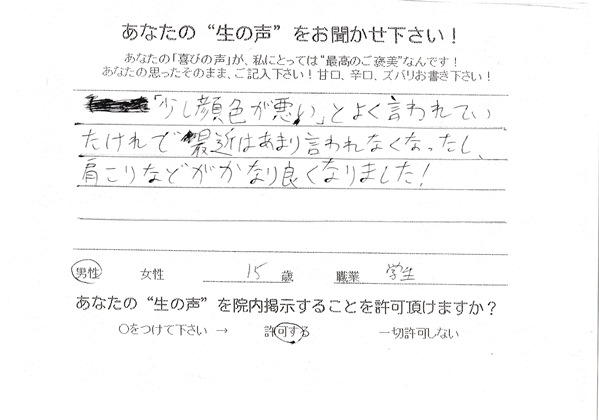 あなたの“生の声”をお聞かせ下さい！
あなたの「喜びの声」が、私にとっては“最高のご褒美”なんです！
あなたの思ったそのまま、ご記入下さい！甘口、辛口、ズバリお書き下さい！
「少し顔色が悪い」とよく言われてい
たけれで最近はあまり言われなくなったし、
肩こりなどがかなり良くなりました！
男性 女性 15 歳 職業 学生
あなたの“生の声”を院内掲示することを許可頂けますか？
〇をつけて下さい → 許可する 一切許可しない